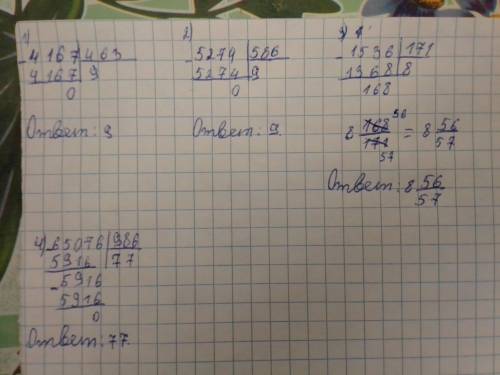 1)
- 4167 | 463
4167 | 9
0
Ответ: 9
2)
- 5274 | 586
5274 | 9
0
Ответ: 9.
3)
- 1536 | 171
1368 | 8
168
8 168/171 56/57 = 8 56/57
Ответ: 8 56/57
4) - 65076 | 986
5916 | 77
- 5916
5916
0
Ответ: 77.